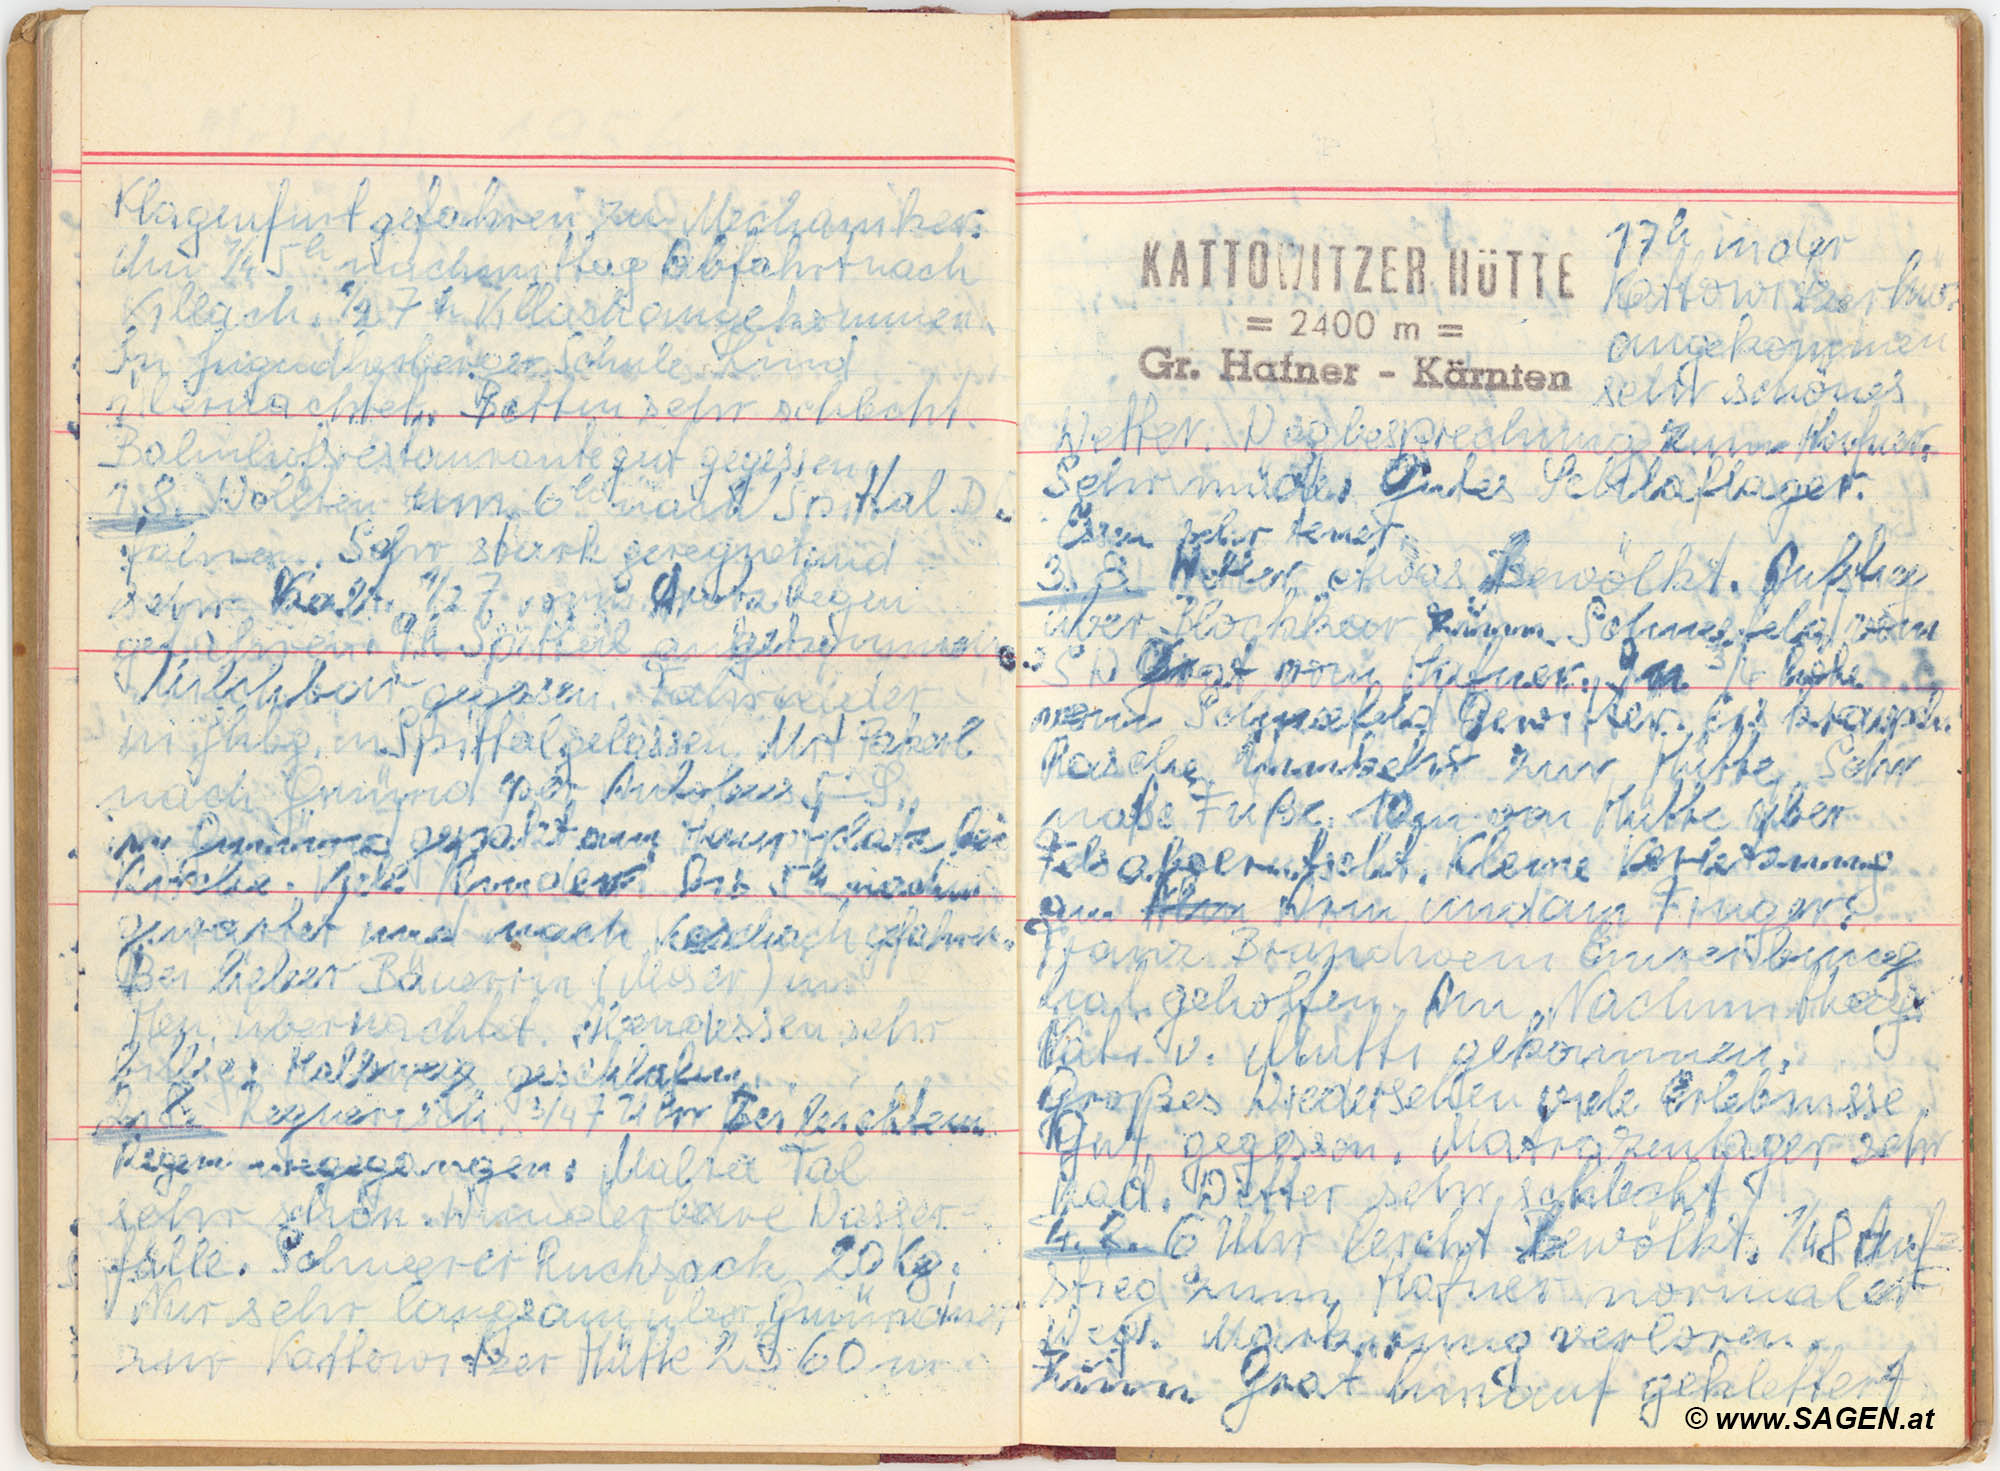 Klagenfurt gefahren zu Mechaniker.
Um 1/4 5h nachmittag Abfahrt nach
Villach. 1/2 7h Villach angekommen
In Jugendherberge Schule Lind
übernachtet. Betten sehr schlecht.
Bahnhofsrestaurante gut gegessen
1.8. Wollten um 6h nach Spittal D.
fahren. Sehr stark geregnet und
sehr kalt. 1/2 7 trotz Regen
gefahren. 9h Spittal angekommen
Milchbar gegessen. Fahrräder
in Jhbg. in Spittal gelassen. Mit
nach Gmünd per Autobus 5 S.
in Gmünd gerastet am Hauptplatz bei
Kirche. Viele Kinder. Bis 5h nachm
gewartet und nach Koschach gefahren.
Bei lieber Bäuerin (Moser) im
Heu übernachtet. Abendessen sehr
billig. Halbwegs geschlafen.
2.8. Regnerisch. 3/4 7 Uhr bei leichtem
Regen weggegangen. Malta Tal
sehr schön. Wunderbare Wasser-
fälle. Schwerer Rucksack 20 kg.
Nur sehr langsam über Gmündner
zur Kattowitzer Hütte 2360 m.
KATTOWITZER HÜTTE
= 2400 m =
Gr. Hafner - Kärnten
17h in der
Kattowitzerhü
angekommen
sehr schönes
Wetter. Wegbesprechung zum Hafner.
Sehr müde. Gutes Schlaflager.
Essen sehr teuer.
3.8. Wetter etwas bewölkt. Aufstieg
über Blockkar zum Schneefeld vom
SW Grat vom Hafner. In 3/4 Höhe
vom Schneefeld Gewitter.
Rasche Umkehr zur Hütte. Sehr
naße Füße. 10m von Hütte über
Fels abgerutscht. Kleine Verletzung
am Arm und am Finger.
Franz
hat geholfen. Am Nachmittag
Vati v. Mutti gekommen.
Großes Wiedersehen viele Erlebnisse
Gut gegessen. Matrazenlager sehr
kalt. Wetter sehr schlecht
4.8. 6 Uhr leicht bewölkt. 1/4 8 Auf-
stieg zum Hafner normaler
Weg. Markierung verloren.
Zum Grat hinauf geklettert
© www.SAGEN.at